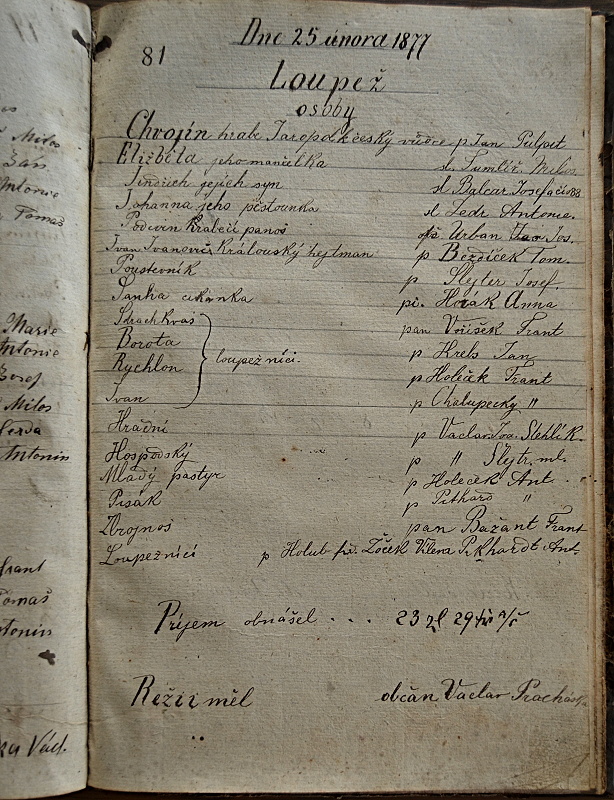 Dne 25 února 1877
81
Loupež
osoby
Chvojín hrabě Jaropolk český vůdce p Jan Pulpit
Elizběta jeho manželka sl. Tumlíř Milos
Jindřich jejich syn sl Balcar Josefa
Johanna jeho pěstounka sl Ledr Antonie.
Podiven Kralečí panoš Urban Jos.
Ivan Ivanovič Královský hejtman p Bezdíček Tom.
Poustevník p Slejter Josef.
Sanha cikánka pí. Horák Anna
Strachkvas pan Voříšek Frant
Borota p Krels Jan
Rychlon p Holeček Frant
loupežníci.
Ivan p Chalupecky "
Hradní p Vaclav Jos. Stehlík.
Hospodský p " Slejtr. ml.
Mladý pastyr p Holeček Ant
Pisák p Pithard "
Zbrojnoš pan Bažant Frant
Loupežníci p Holub Zoček Vilém Pikhardt Ant
Príjem obnášel . . . 23 zl 29
Režii měl občan Vaclav
Milos
Antonie
Tomaš
Marie
Antonie
Josef
Milos
Antonin
Frant
Tomaš
Antonin
Václ.